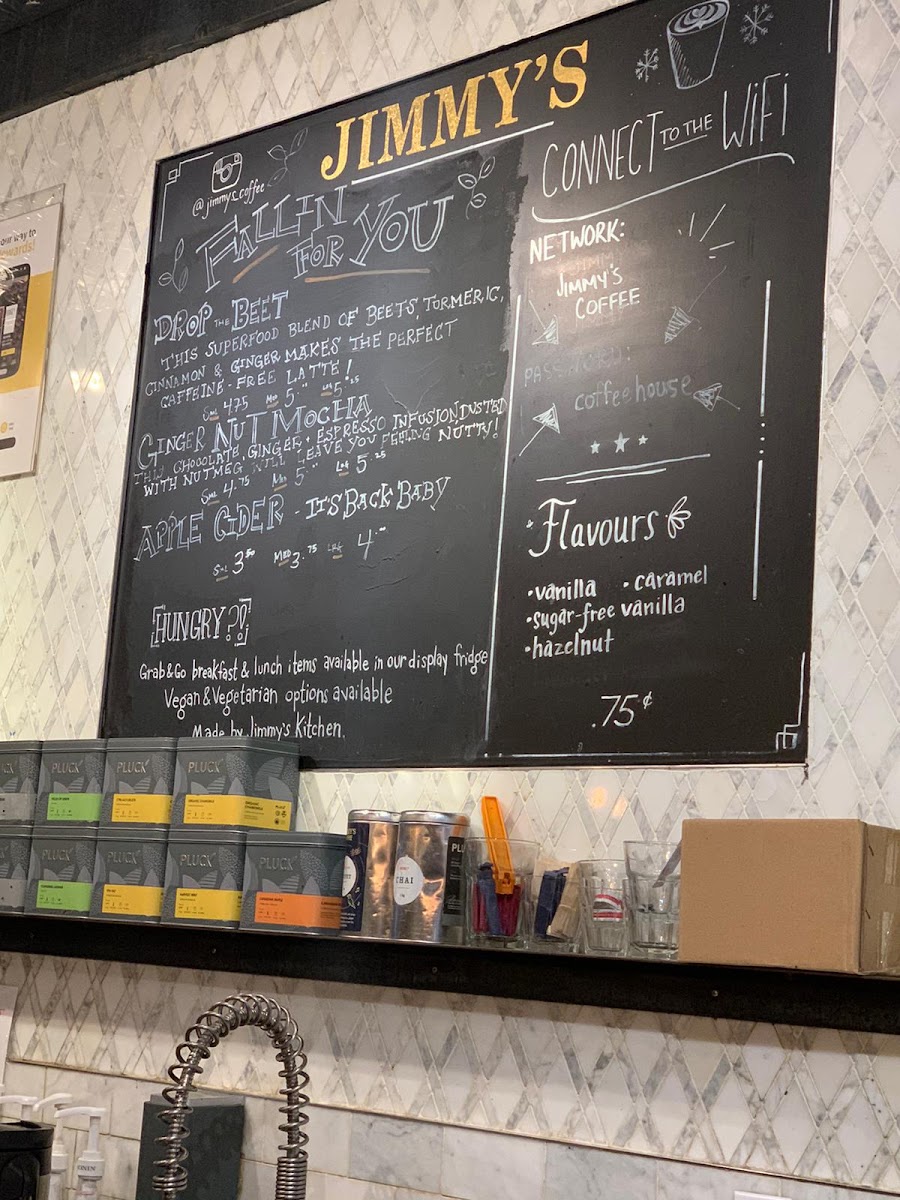 JIMMY'S
@jimmys_coffee
FALL IN
FOR YOU
DROP THE BEET
THIS SUPERFOOD BLEND OF BEETS, TURMERIC,
CINNAMON & GINGER MAKES THE PERFECT
CAFFEINE-FREE LATTE!
SML 4.75 MED 5.00 LRG 5.25
GINGER NUT MOCHA
THIS CHOCOLATE, GINGER, + ESPRESSO INFUSION, DUSTED
WITH NUTMEG WILL LEAVE YOU FEELING NUTTY!
SML 4.75 MED 5.00 LRG 5.25
APPLE CIDER - IT'S BACK BABY
SML 3.50 MED 3.75 LRG 4.00
HUNGRY?!
Grab&Go breakfast & lunch items available in our display fridge
Vegan & Vegetarian options available
Made by Jimmy's Kitchen.
CONNECT TO THE WIFI
NETWORK:
JIMMY'S
COFFEE
PASSWORD:
coffeehouse
Flavours
• vanilla • caramel
• sugar-free vanilla
• hazelnut
.75¢
our way to
PLUCK
PLUCK
PLUCK
PLUCK
PLUCK
PLUCK
PLUCK
PLUCK
CHAI
PLU